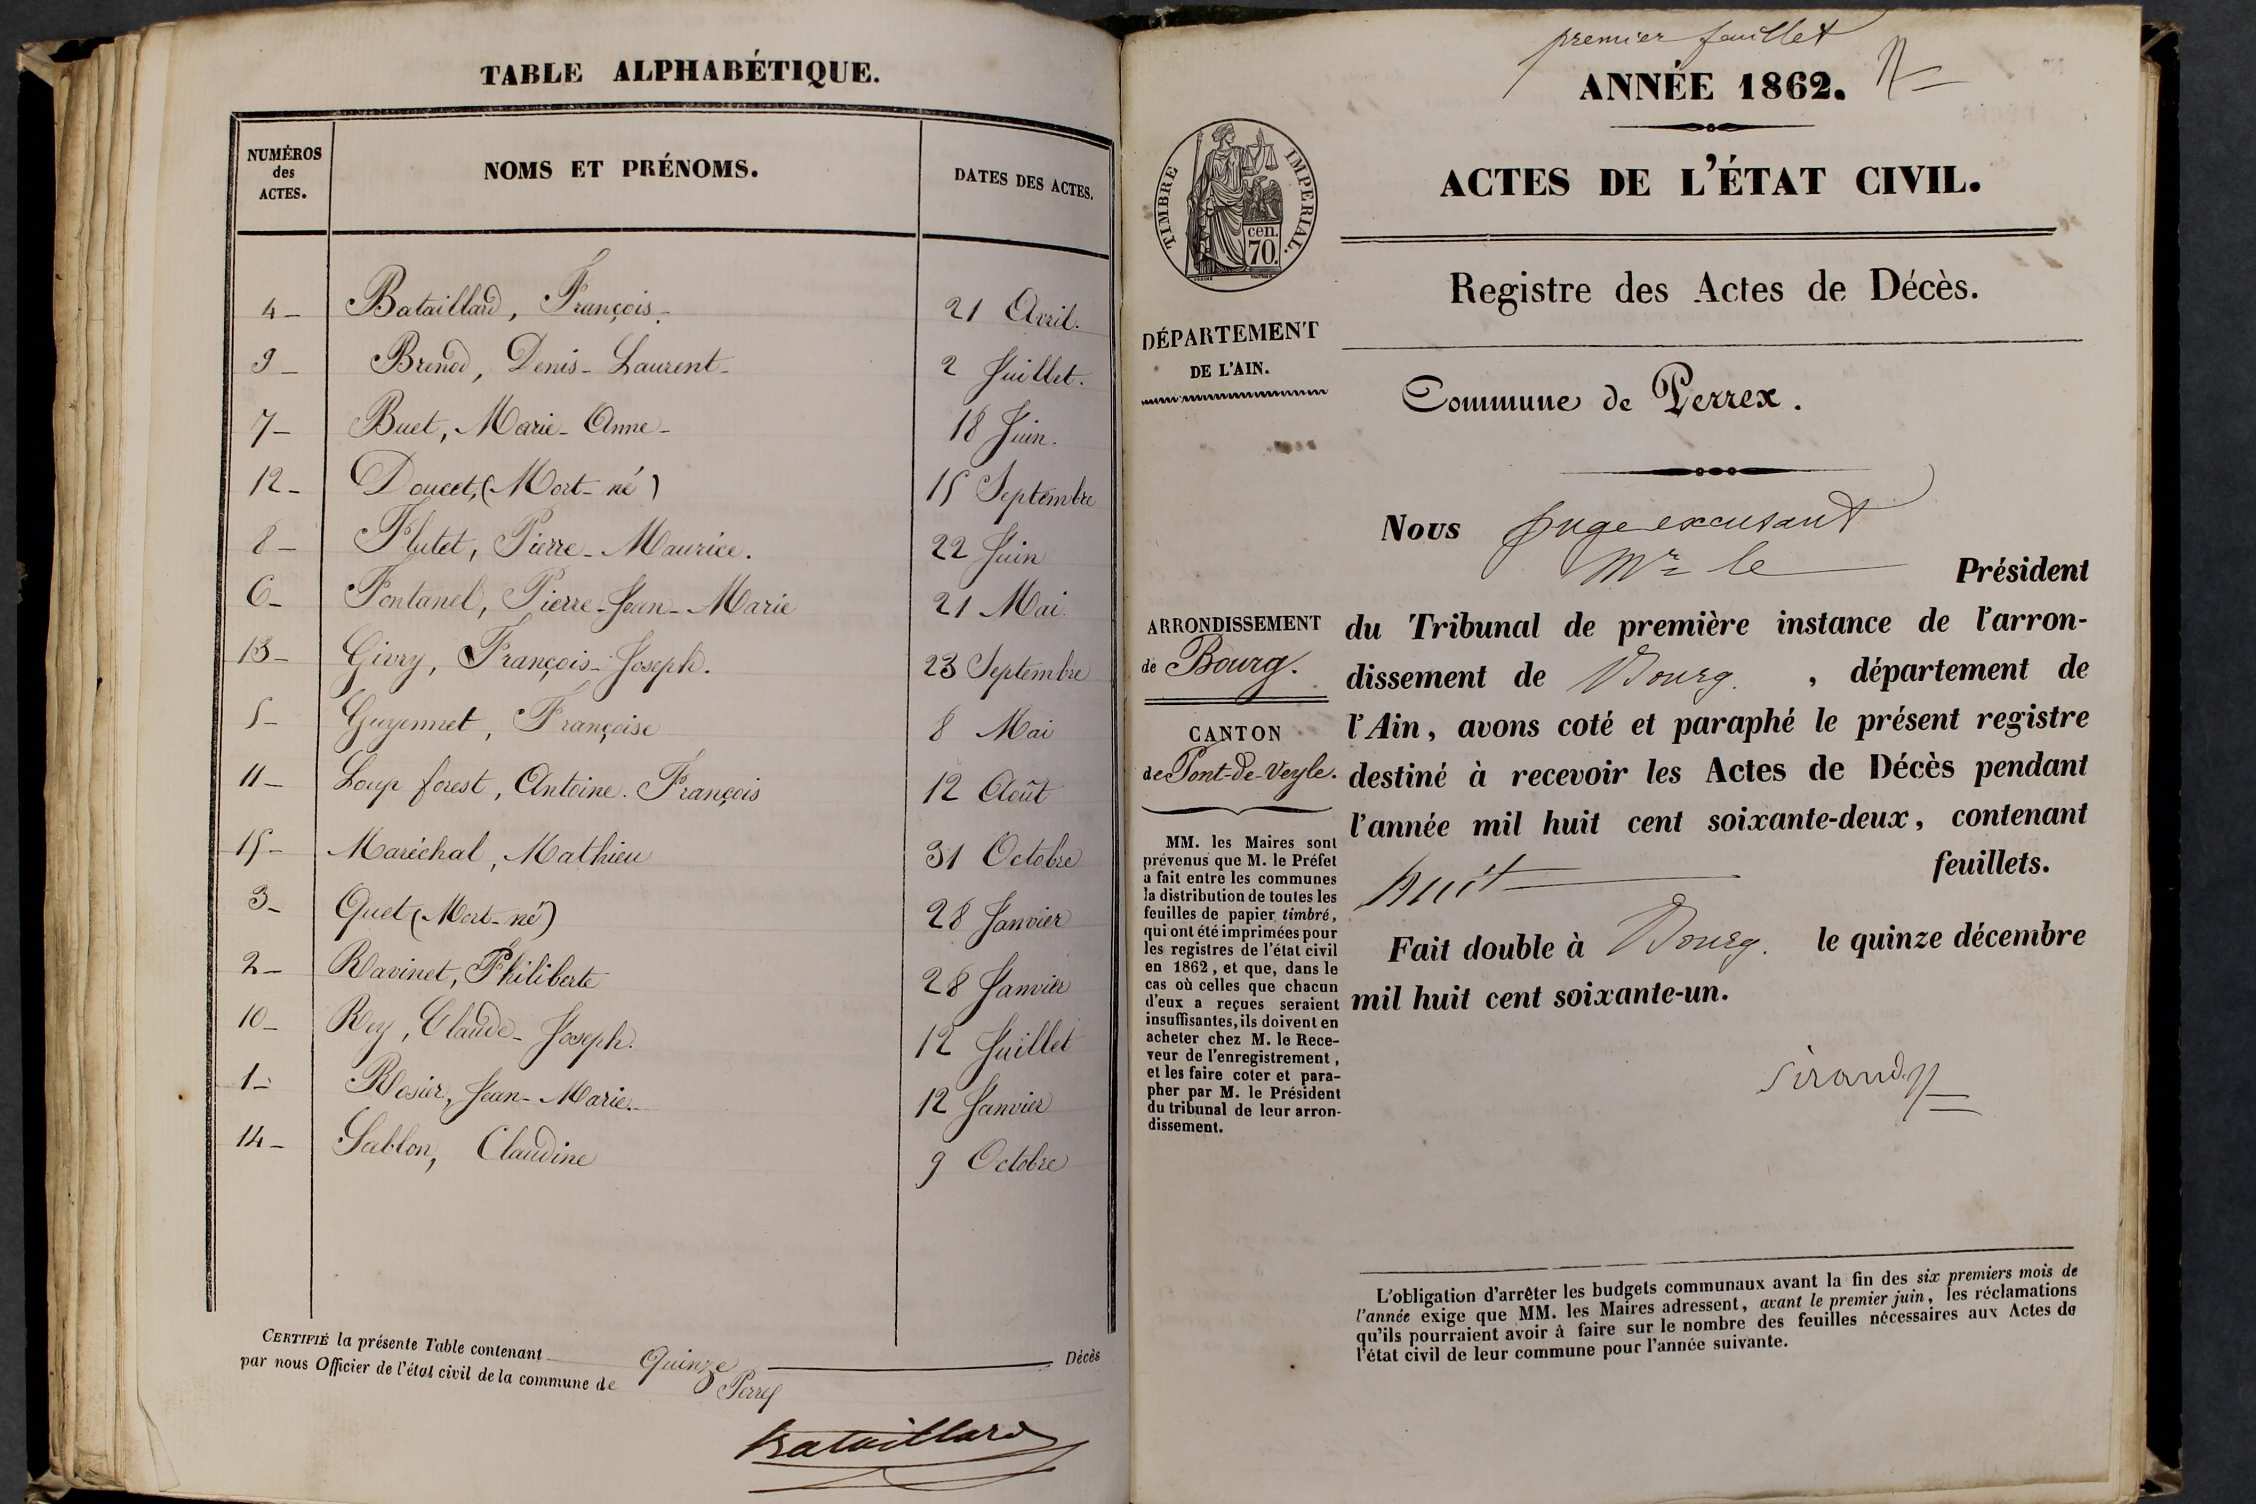 TABLE ALPHABÉTIQUE.
NUMÉROS
des
ACTES.
NOMS ET PRÉNOMS.
DATES DES ACTES.
4 - Bataillard, François. 21 Avril.
9 - Brenod, Denis - Laurent - 2 Juillet.
7 - Buet, Marie - Anne - 18 Juin.
12 - Doucet, (Mort - né) 15 Septembre
8 - Flutet, Pierre - Maurice. 22 Juin
6 - Fontanel, Pierre - Jean - Marie 21 Mai.
13 - Givry, François - Joseph. 23 Septembre
5 - Guyennet, Françoise 8 Mai
11 - Loup forest, Antoine. François 12 Août
15 - Maréchal, Mathieu 31 Octobre
3 - Quet (Mort - né) 28 Janvier
2 - Ravinet, Philiberte 28 Janvier
10 - Rey, Claude - Joseph. 12 Juillet
1 - Rosier, Jean - Marie. 12 Janvier
14 - Sablon, Claudine 9 Octobre
CERTIFIÉ la présente Table contenant Quinze Décès
par nous Officier de l'état civil de la commune de Perrex
Bataillard
premier feuillet
ANNÉE 1862.
TIMBRE IMPERIAL.
cen.
70.
ACTES DE L'ÉTAT CIVIL.
Registre des Actes de Décès.
DÉPARTEMENT
DE L'AIN.
Commune de Perrex.
ARRONDISSEMENT
de Bourg.
CANTON
de Pont-de-Veyle.
MM. les Maires sont
prévenus que M. le Préfet
a fait entre les communes
la distribution de toutes les
feuilles de papier timbré,
qui ont été imprimées pour
les registres de l'état civil
en 1862, et que, dans le
cas où celles que chacun
d'eux a reçues seraient
insuffisantes, ils doivent en
acheter chez M. le Rece-
veur de l'enregistrement,
et les faire coter et para-
pher par M. le Président
du tribunal de leur arron-
dissement.
Nous Juge excusant
Mr le Président
du Tribunal de première instance de l'arron-
dissement de Bourg. , département de
l'Ain, avons coté et paraphé le présent registre
destiné à recevoir les Actes de Décès pendant
l'année mil huit cent soixante-deux, contenant
huit feuillets.
Fait double à Bourg. le quinze décembre
mil huit cent soixante-un.
Sirand
L'obligation d'arrêter les budgets communaux avant la fin des six premiers mois de
l'année exige que MM. les Maires adressent, avant le premier juin, les réclamations
qu'ils pourraient avoir à faire sur le nombre des feuilles nécessaires aux Actes de
l'état civil de leur commune pour l'année suivante.